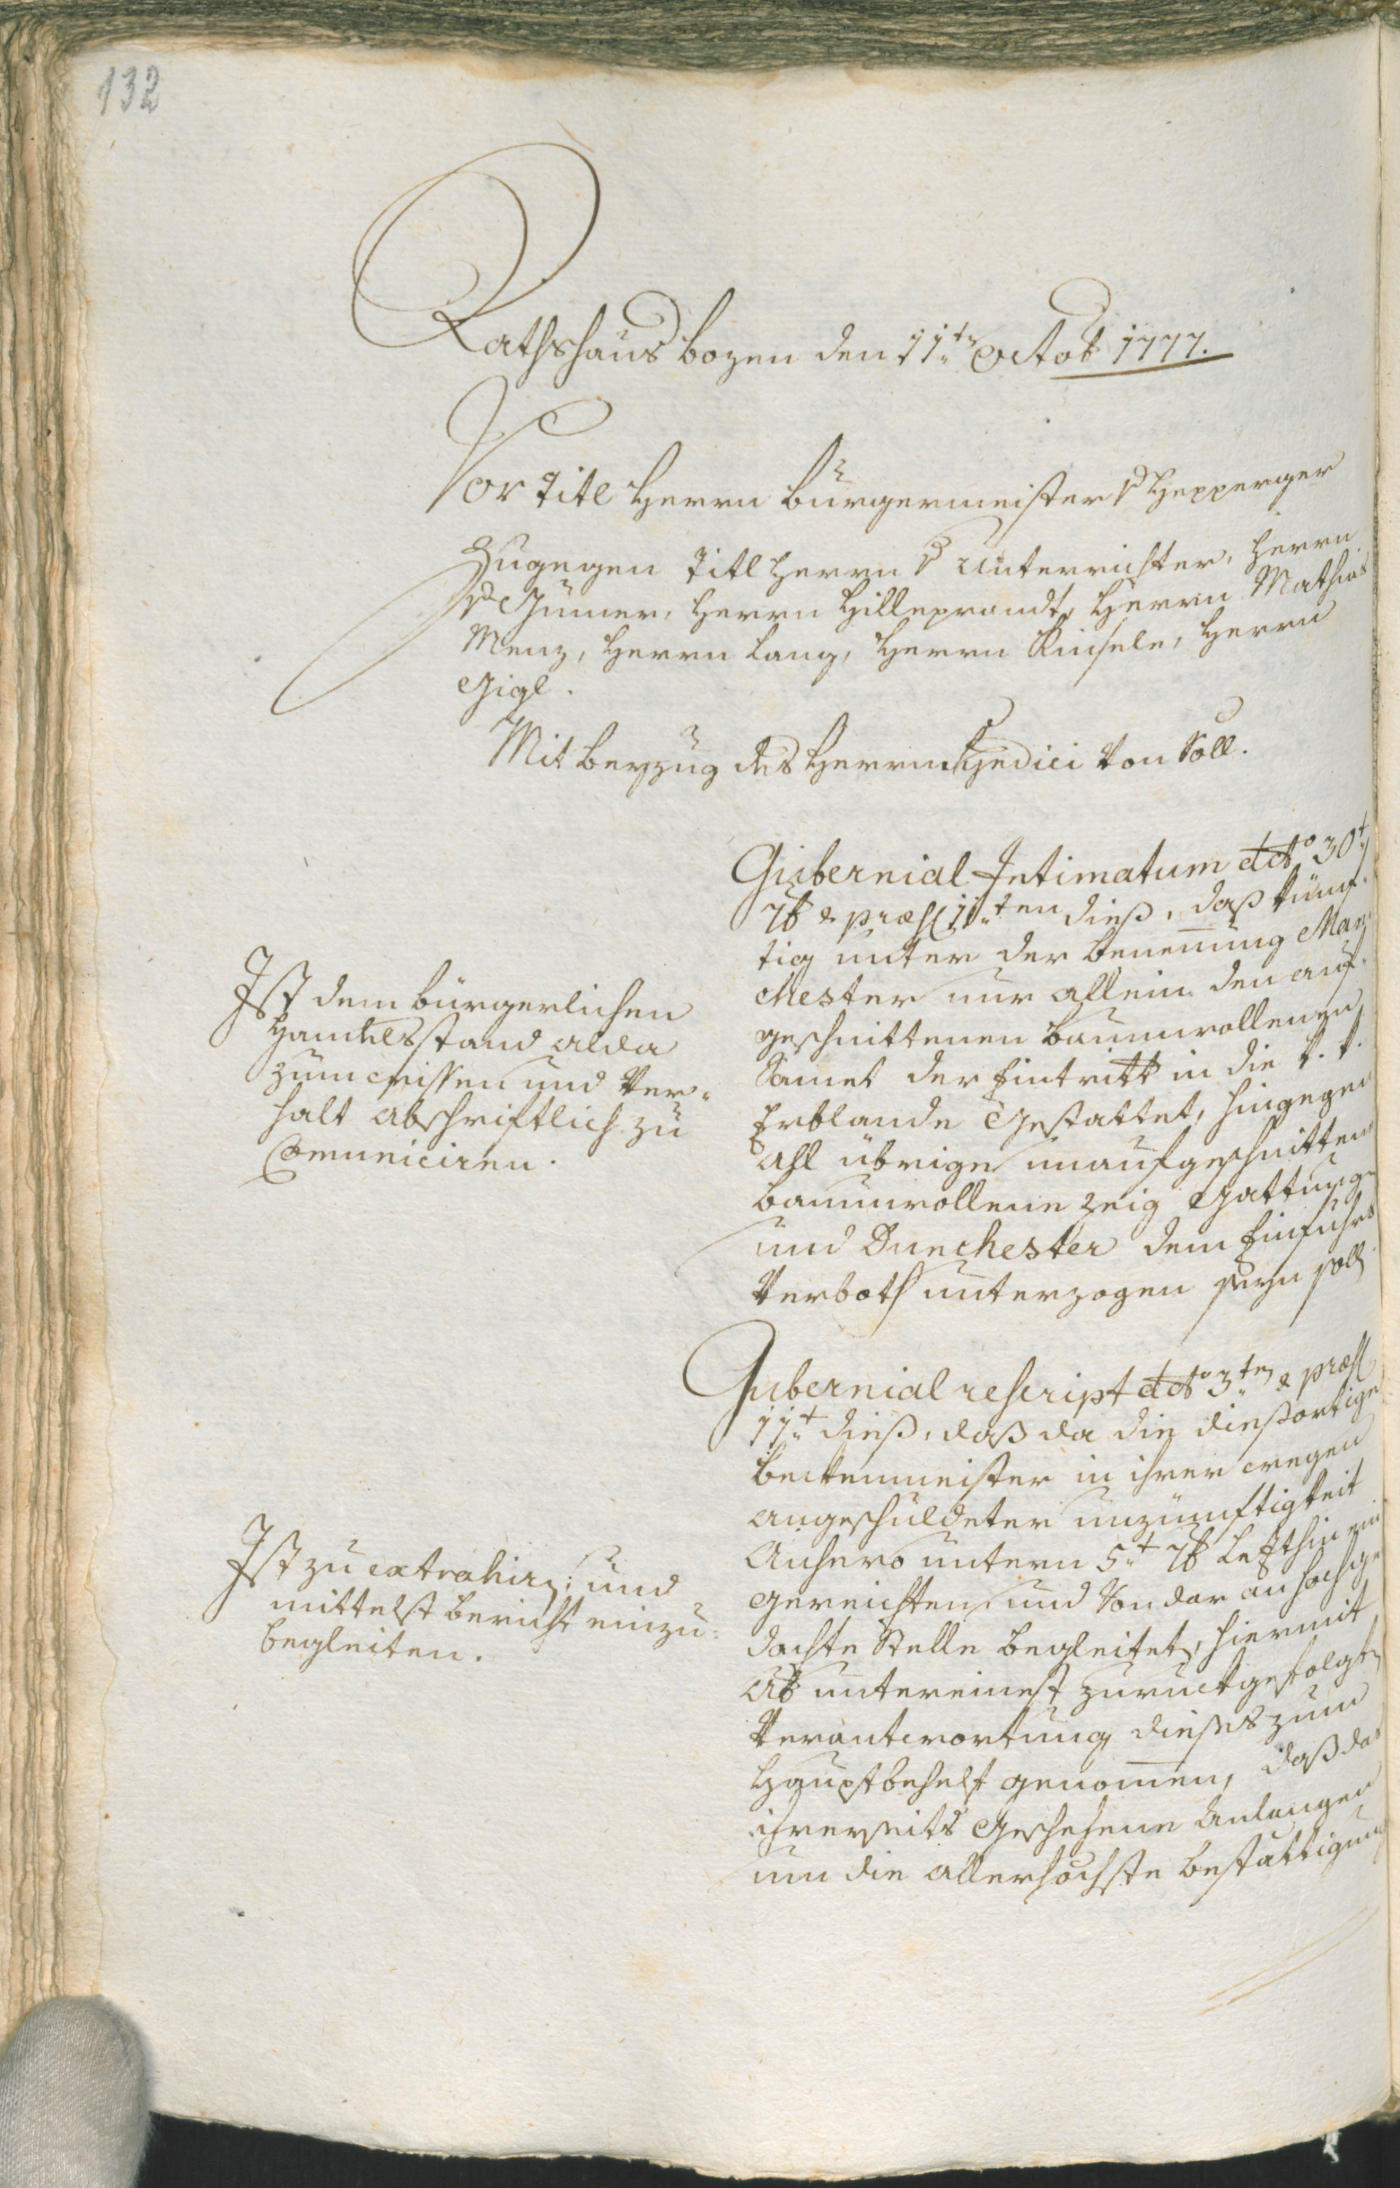 132
Rathshaus bozen den 11ten Octob 1777.
Vor Titl Herrn bürgermeister v Hepperger
Zugegen Titl Herrn v Unterrichter, Herrn
v Gumer, Herrn Hilleprandt, Herrn Mathias
Menz, Herrn Lang, Herrn Kinsele, Herrn
Gigl.
Mit beyzug des Herrn Syndici von Söll.
Gubernial Intimatum ddto 30t
7b & præs 11ten dieß, daß künf-
tig unter der benennung Man-
chester nur allein den auf-
geschnittenen baumwollenen
Samet der Eintritt in die k. k.
Erblande gestattet, hingegen
all übrige unaufgeschnittene
baumwollene Zeig Gattungen
und Dunchester dem Einfuhrs
Verboth unterzogen seyn soll
Ist dem bürgerlichen
Handelsstand alda
zum wissen und Ver-
halt abschriftlich zu
Comuniciren.
Gubernial rescript ddto 3ten & præs
11t dieß, daß da die dießortige
beckenmeister in ihrer wegen
angeschuldeter unzünftigkeit
Anhero untern 5t 7b letsthin ein
gereichten und Von dar an hochge
dachte Stelle begleitet, hiermit
Ab untereinest zuruckgefolgten
Verantwortung dieses zum
Hauptbehelf genomen, daß das
ihrerseits geschehene Anlangen
um die allerhöchste bestättigung
Ist zu extrahirn; und
mittelst bericht einzu-
begleiten.